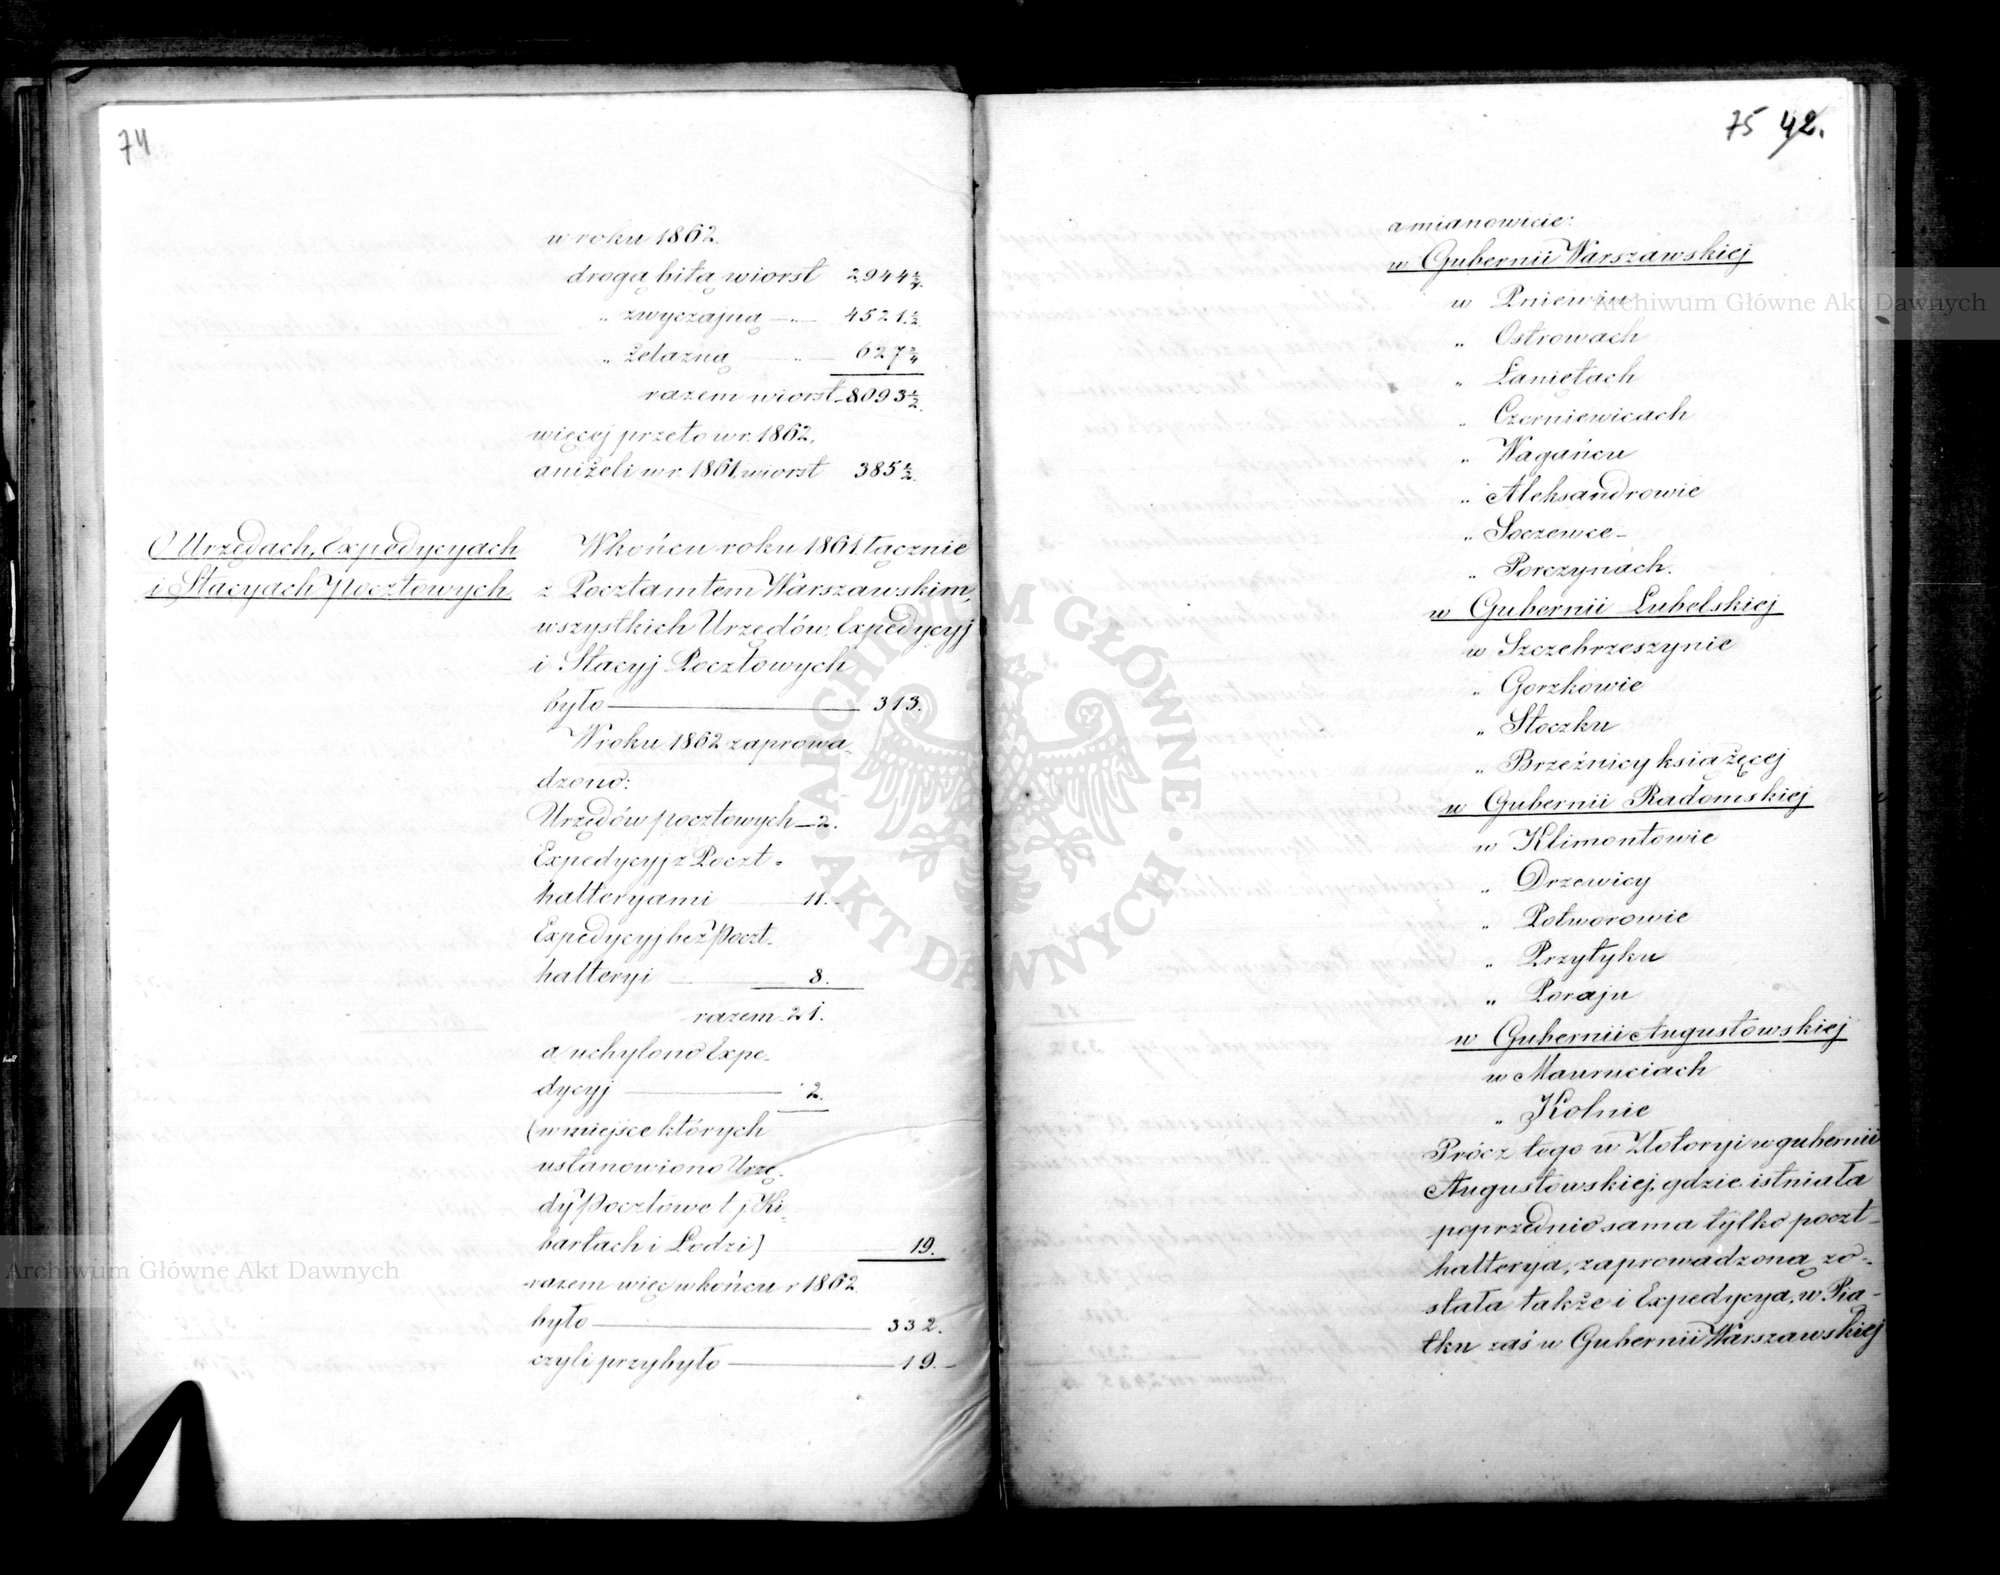 74
w roku 1862.
drogą bitą wiorst 2944 2/4.
" zwyczajną —"— 4521 1/2.
" żelazną —"— 627 2/4
razem wiorst 8093 1/2.
więcej przeto w r. 1862,
aniżeli w r. 1861. wiorst 385 1/2.
O Urzędach, Expedycyach
i Stacyach pocztowych
W końcu roku 1861. łącznie
z Pocztamtem Warszawskim,
wszystkich Urzędów, Expedycyj
i Stacyj Pocztowych
było — 313.
W roku 1862 zaprowa
dzono:
Urzędów pocztowych — 2.
Expedycyj z Poczt=
halteryami — 11.
Expedycyj bez poczt-
halteryi — 8.
razem 21.
a uchylono Expe-
dycyj — 2.
(w miejsce których
ustanowiono Urzę-
dy pocztowe t. j. Ki-
bartach i Łodzi) — 19.
razem więc w końcu r 1862.
było — 332.
czyli przybyło — 19.
75 42.
a mianowicie:
w Gubernii Warszawskiej
w Pniewiu
" Ostrowach
" Łaniętach
" Czerniewicach
" Wagańcu
" Aleksandrowie
" Soczewce
" Porczynach.
w Gubernii Lubelskiej
w Szczebrzeszynie
" Gorzkowie
" Stoczku
" Brzeźnicy książęcej
w Gubernii Radomskiej
w Klimontowie
" Drzewicy
" Potworowie
" Przytyku
" Poraju
w Gubernii Augustowskiej
w Mauruciach
" Kolnie
Prócz tego w Złotoryi w gubernii
Augustowskiej, gdzie istniała
poprzednio sama tylko poczt-
halterya, zaprowadzoną zo-
stała także i Expedycya, w Pią-
tku zaś w Gubernii Warszawskiej
Archiwum Główne Akt Dawnych
Archiwum Główne Akt Dawnych
ARCHIWUM GŁÓWNE · AKT DAWNYCH ·